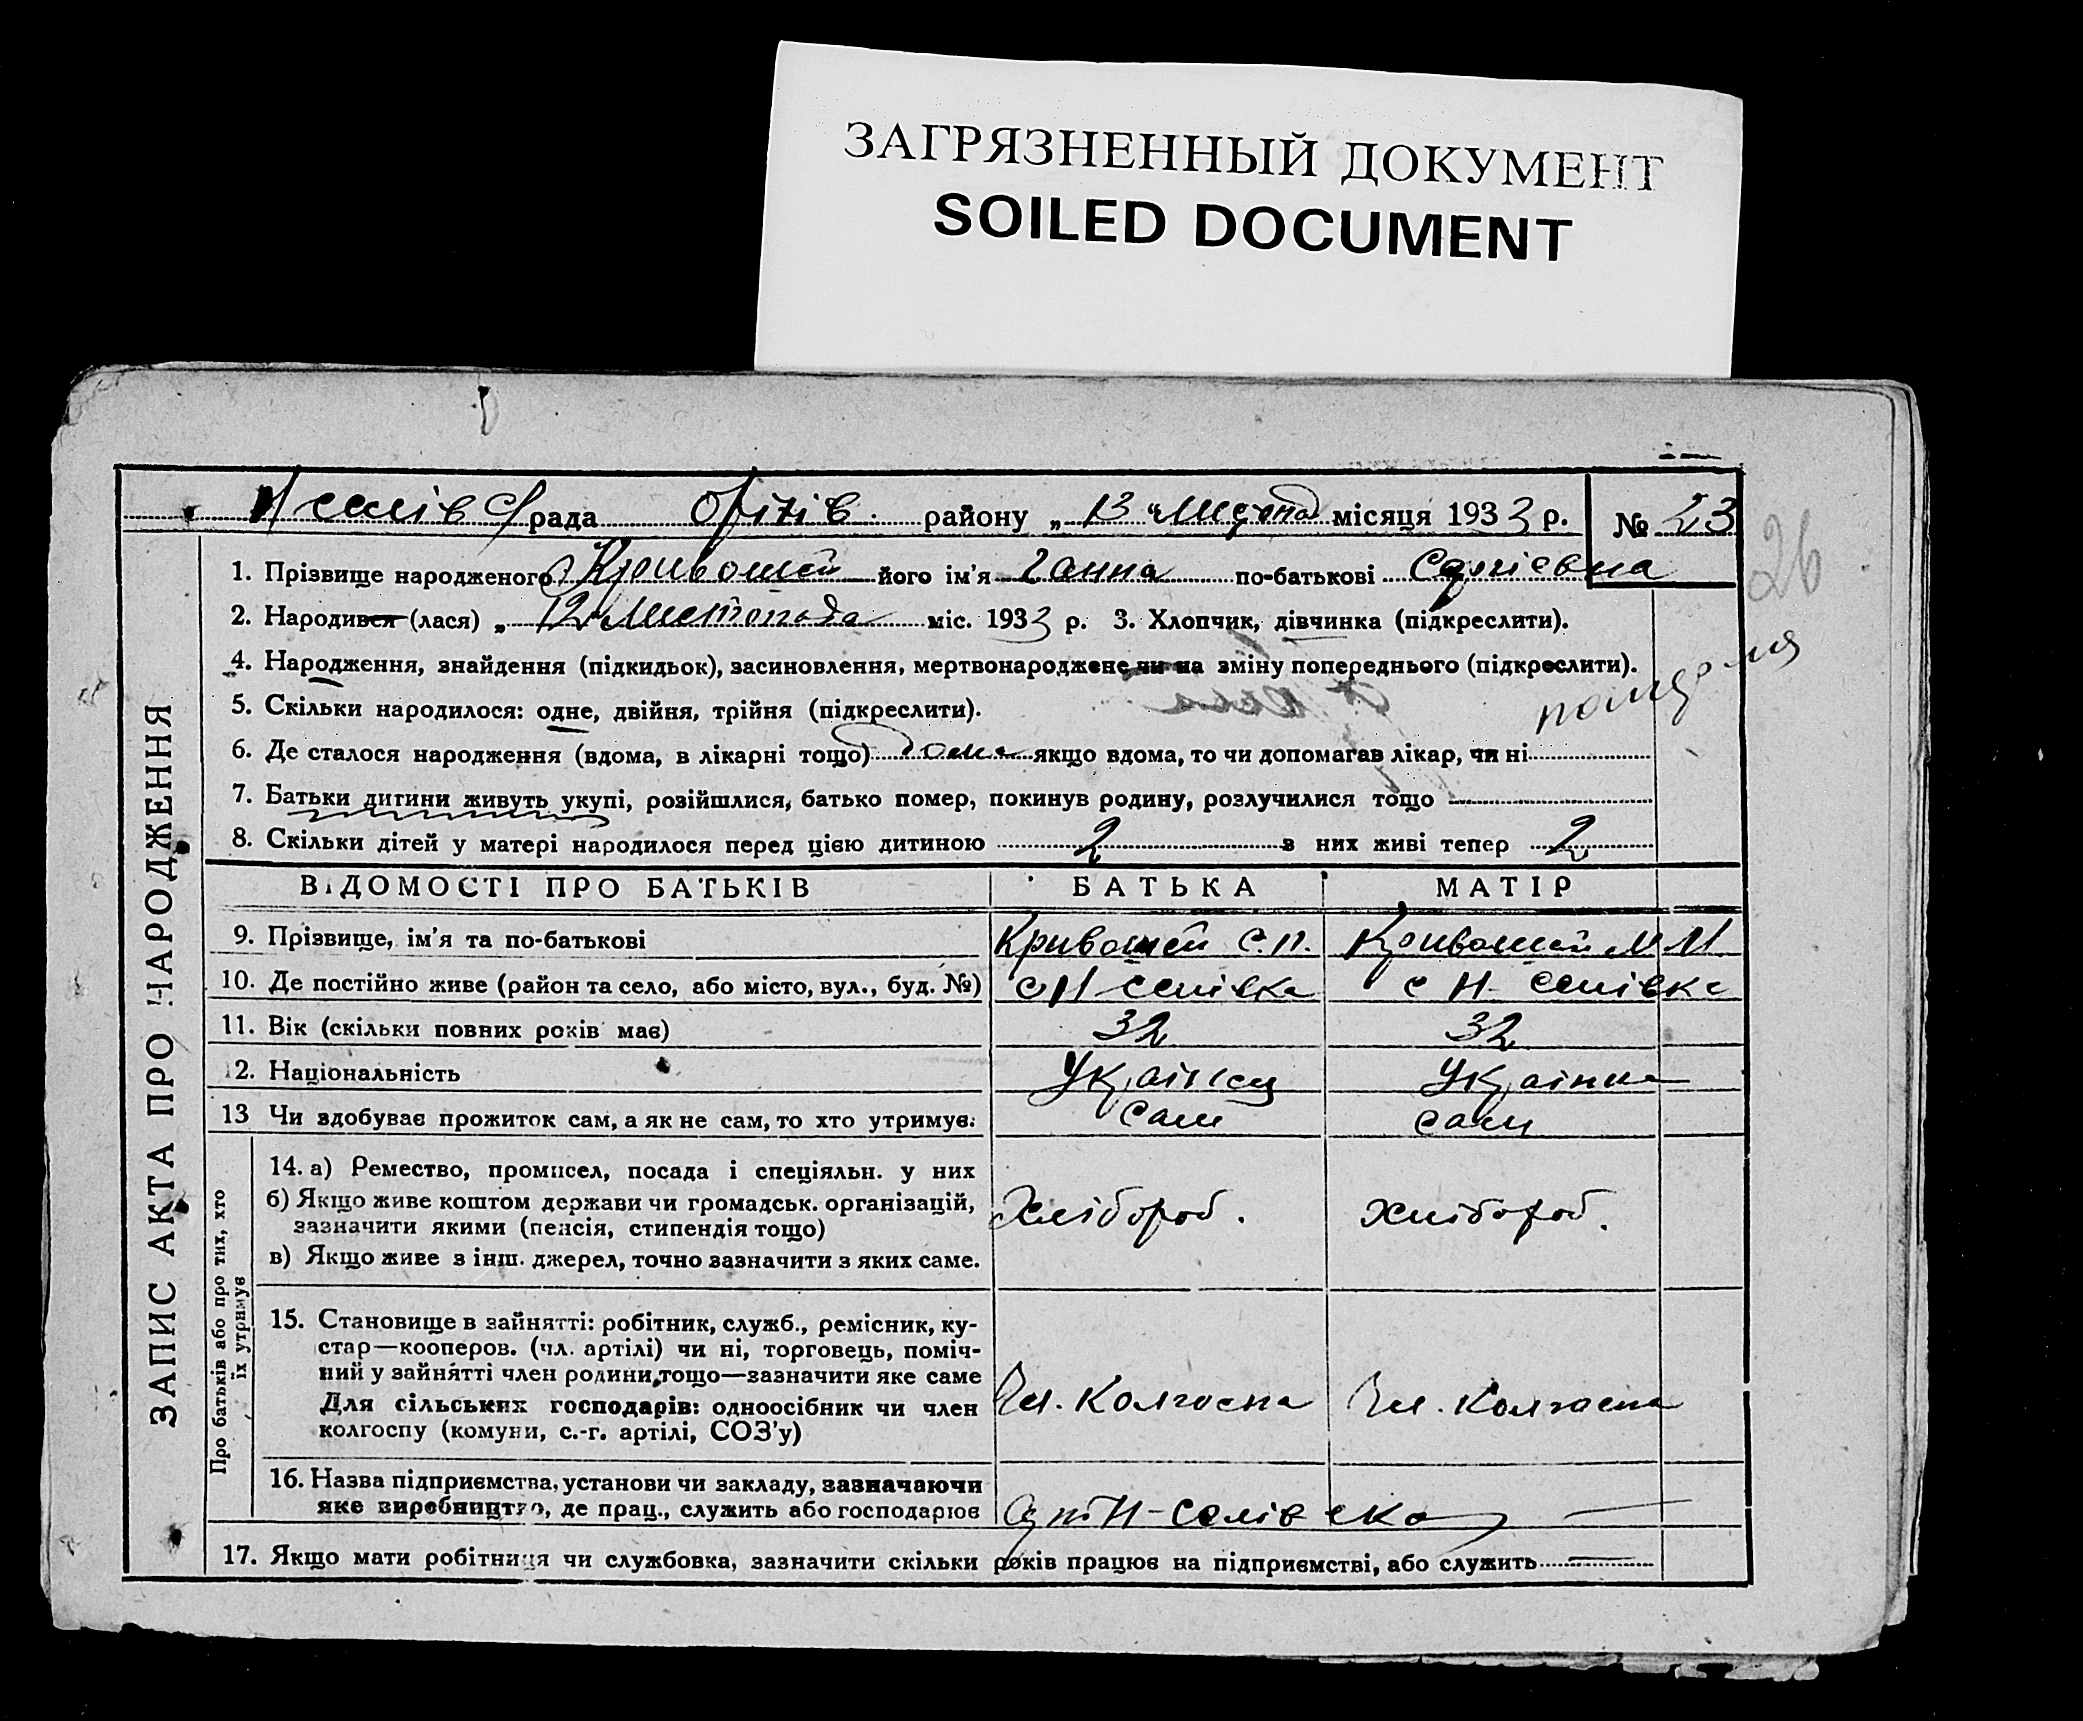 ЗАГРЯЗНЕННЫЙ ДОКУМЕНТ
SOILED DOCUMENT
рада Оріхів. району „ 13 " місяця 1933 р. № 23
26
1. Прізвище народженого Кривошей його ім'я Ганна по-батькові Сергієвна
2. Народився (лася) „ 12 " Листопада міс. 1933 р. 3. Хлопчик, дівчинка (підкреслити).
4. Народження, знайдення (підкидьок), засиновлення, мертвонароджене чи на зміну попереднього (підкреслити).
5. Скільки народилося: одне, двійня, трійня (підкреслити).
6. Де сталося народження (вдома, в лікарні тощо) дома якщо вдома, то чи допомагав лікар, чи ні
7. Батьки дитини живуть укупі, розійшлися, батько помер, покинув родину, розлучилися тощо
8. Скільки дітей у матері народилося перед цією дитиною 2 з них живі тепер 2
ВІДОМОСТІ ПРО БАТЬКІВ БАТЬКА МАТІР
9. Прізвище, ім'я та по-батькові Кривошей С.П. Кривошей М М
10. Де постійно живе (район та село, або місто, вул., буд. №) с Н Селівка с Н-Селівка
11. Вік (скільки повних років має) 32 32
12. Національність Українец Українка
13 Чи здобуває прожиток сам, а як не сам, то хто утримує: сам сам
14. а) Ремество, промисел, посада і спеціяльн. у них
б) Якщо живе коштом держави чи громадськ. організацій,
зазначити якими (пенсія, стипендія тощо) Хлібороб. хлібороб.
в) Якщо живе з інш. джерел, точно зазначити з яких саме.
15. Становище в зайнятті: робітник, служб., ремісник, ку-
стар—кооперов. (чл. артілі) чи ні, торговець, поміч-
ний у зайнятті член родини, тощо—зазначити яке саме
Для сільських господарів: одноосібник чи член Чл. Колгоспа Чл. Колгоспа
колгоспу (комуни, с.-г. артілі, СОЗ'у)
16. Назва підприємства, установи чи закладу, зазначаючи
яке виробництво, де прац., служить або господарює
17. Якщо мати робітниця чи службовка, зазначити скільки років працює на підприємстві, або служить —
ЗАПИС АКТА ПРО НАРОДЖЕННЯ
Про батьків або про тих, хто
їх утримує